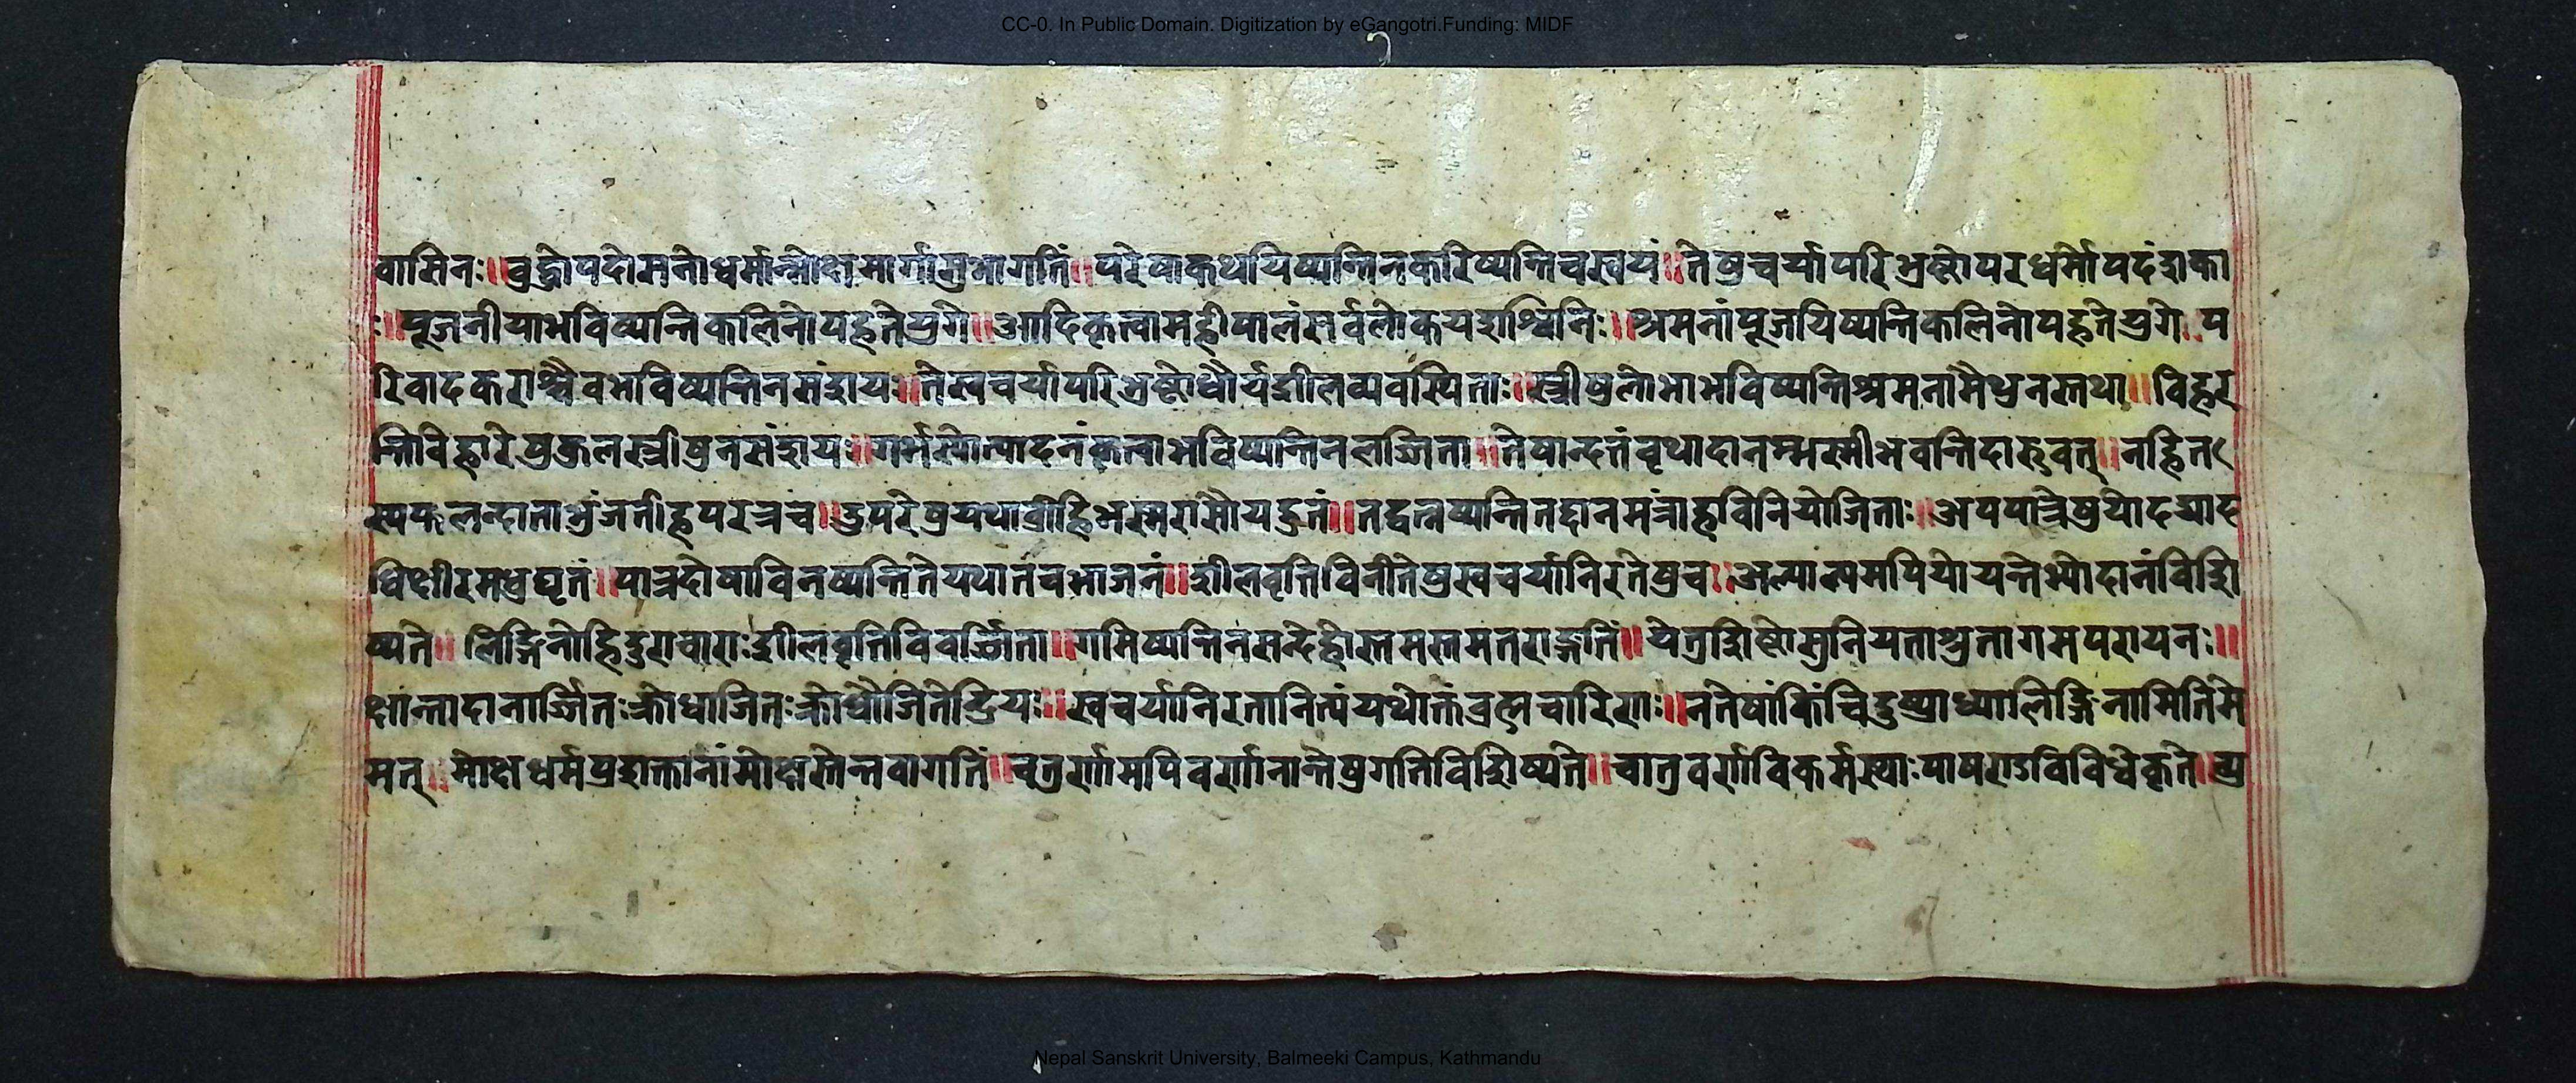 CC-0. In Public Domain. Digitization by eGangotri.Funding: MIDF
वासिनः॥बुद्धोपदोसनोधर्मान्मोक्षमार्गासुभागतिं॥परेषाकथयिष्यन्तिनकरिष्यन्तिचस्वयं॥तेषुचर्यापरिभ्रष्टोपरधर्मोपदंशका
ः॥पूजनीयाभविष्यन्तिकलिनोपहतेयुगे॥आदिकृत्वामहीपालंसर्वलोकयशश्विनिः॥श्रमनांपूजयिष्यन्तिकलिनोपहतेयुगे॥प
रिवादकराश्चैवभविष्यन्तिनसंशयः॥तेस्वचर्यापरिभ्रष्टोधौर्यशीलव्यवस्थिताः॥स्त्रीषुलोभाभविष्यन्तिश्रमनामैथुनस्तथा॥विहर
न्तिविहारेषुकुलस्त्रीषुनसंशयः॥गर्भस्योत्पादनंकृत्वाभविष्यन्तिनलज्जिता॥तेषान्दत्तंवृथादानम्भस्मीभवन्तिदारुवत्॥नहित
स्यफलन्दाताभुंजतीहपरत्रच॥ढुपरेषुयथाव्रीहिभस्मरासौयद्धुतं॥तद्वत्नष्यन्तितद्दानमंत्राहविनियोजिताः॥अपपात्रेषुयोदद्याद
धिक्षीरमधुघृतं॥पात्रदोषाविनष्यन्तितेयथातंचभाजनं॥शीलवृत्तिविनीतेषुस्वचर्यानिरतेषुच॥अल्पात्पमपियोयन्तेभ्योदानंविशि
ष्यते॥लिङ्गिनोहिदुराचाराःशीलवृत्तिविवर्ज्जिता॥गमिष्यन्तिनसन्देहोस्तमस्तमतराङ्गतिं॥येत्रशिष्टोसुनियताश्रुतागमपरायनः॥
क्षान्तादानार्ज्जितःक्रोधाजितःक्रोधौजितेन्द्रियः॥स्वचर्यानिरतानित्यंयथोक्तंब्रह्मचारिणः॥नतेषांकिंचिदुष्प्राध्यालिङ्गिनामितिमे
मत्॥मोक्षधर्मप्रशक्तानांमोक्षस्तेन्तवागतिं॥चतुर्णामपिवर्णानान्तेषुगतिविशिष्यते॥चातुवर्णाविकर्मस्थाःपाषण्डविविधेकृते॥प्र
Nepal Sanskrit University, Balmeeki Campus, Kathmandu